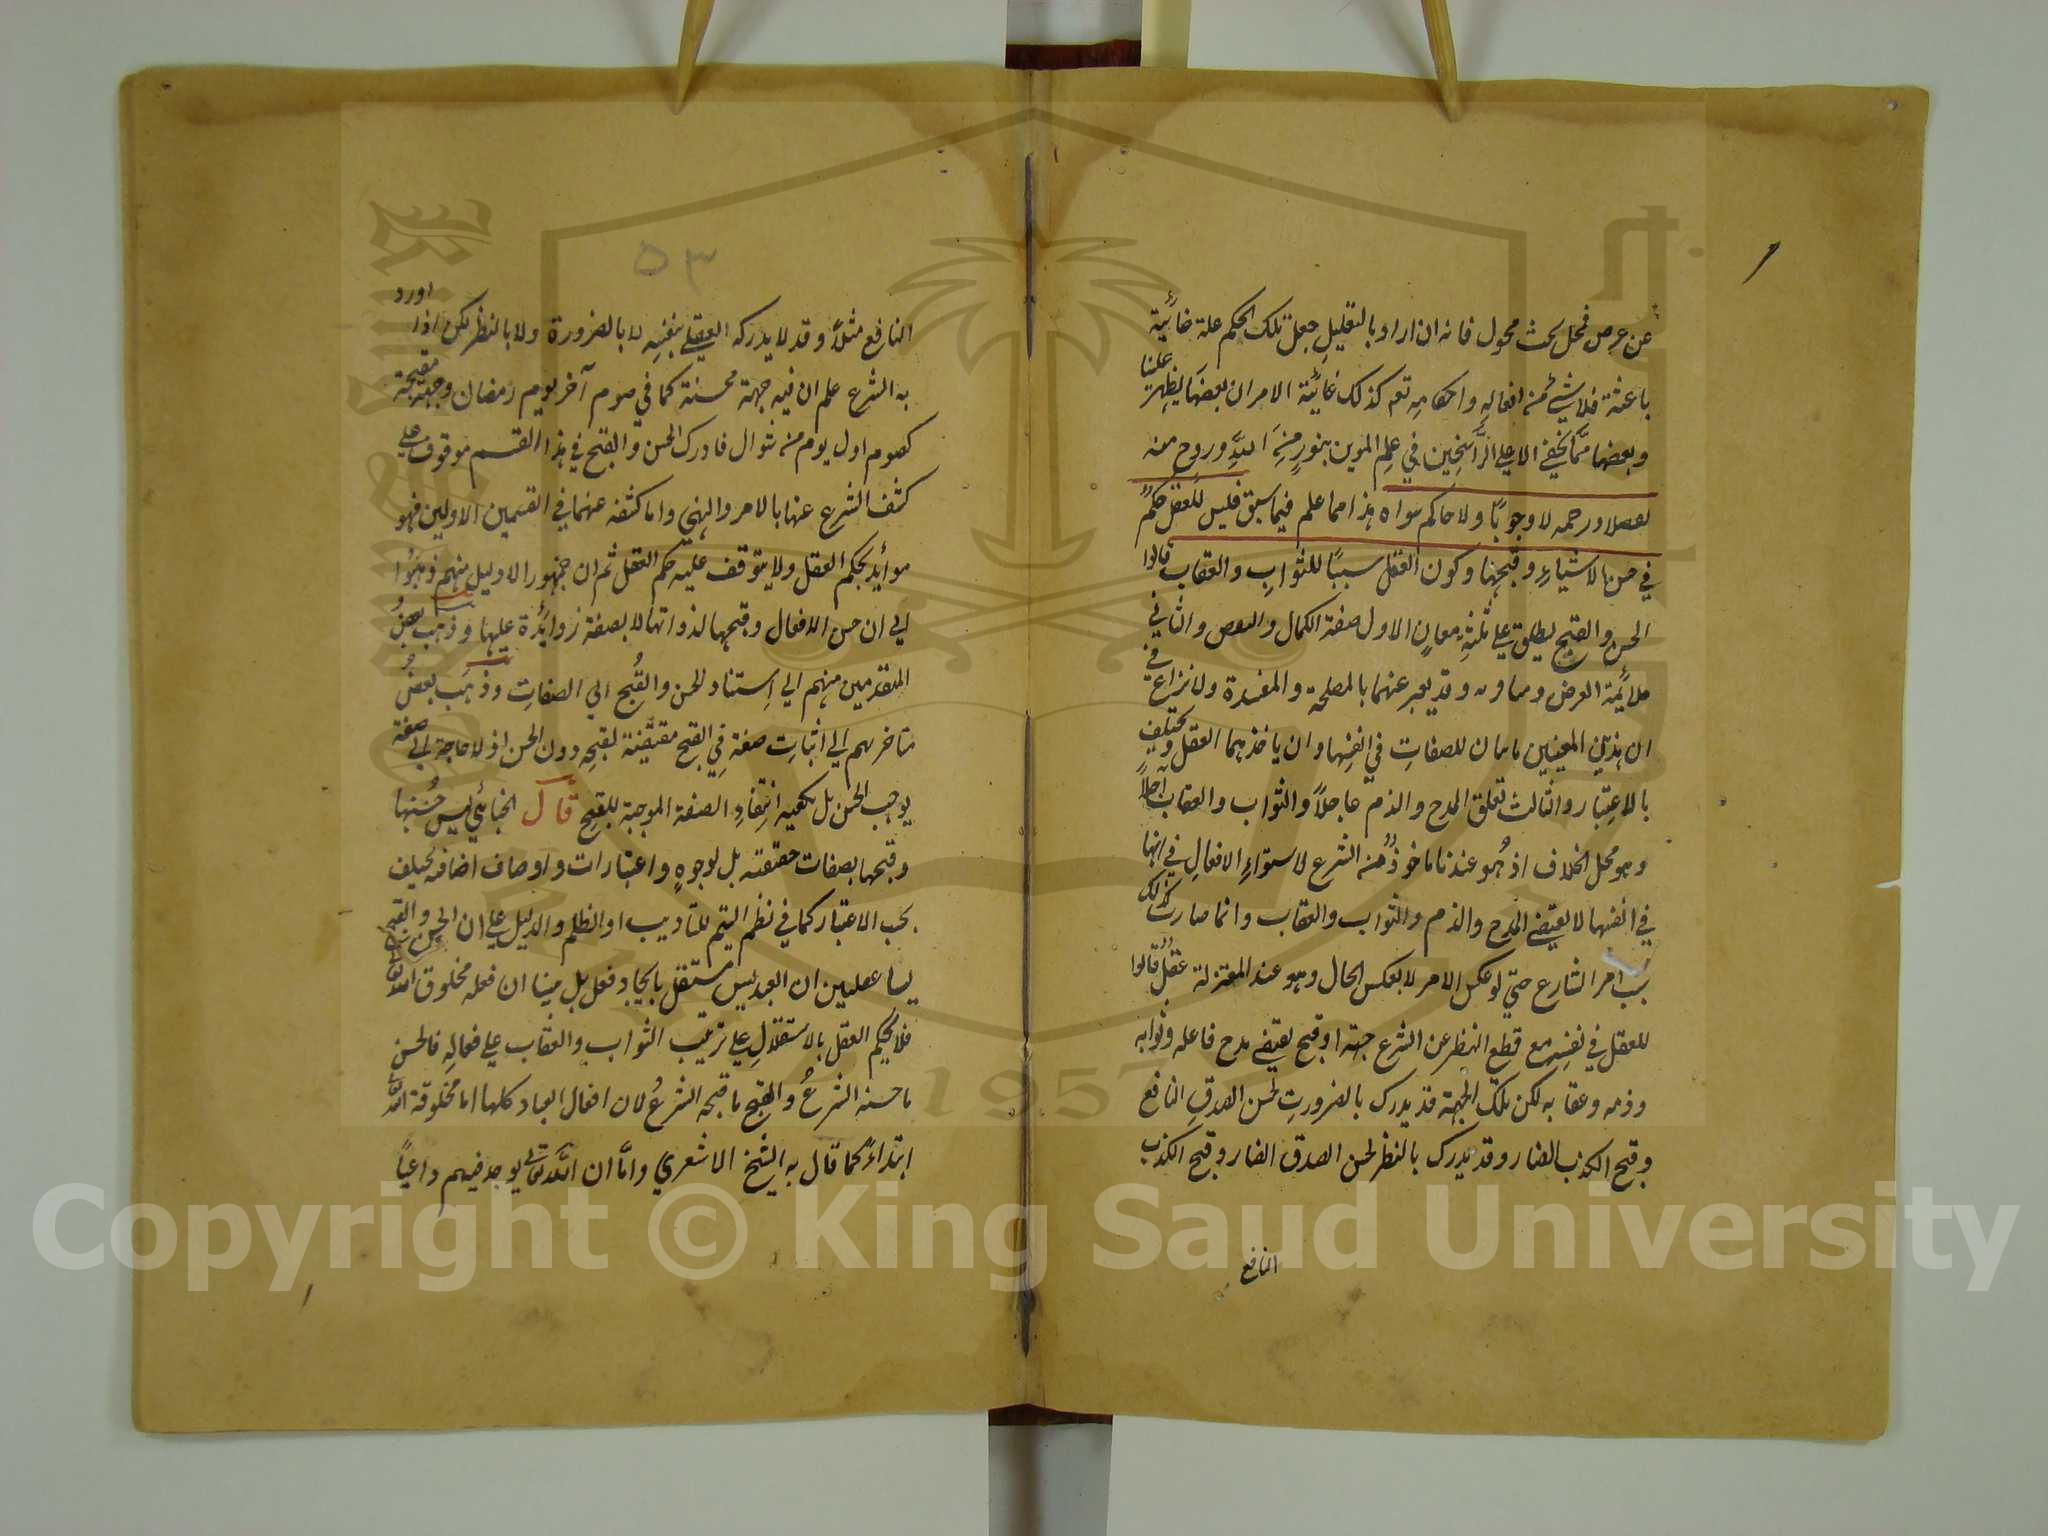 عن عرض فمحل بحث محول فانه ان اراد بالتعليل جعل تلك الحكم علة غائية
باعثة فلا شيء من افعاله واحكامه نعم كذلك غائية الامر ان بعضها يظهر علينا
وبعضها مما يخفي الا علي الراسخين في علم المدين بنور من الله وروح منه
تفضلا ورحمه لا وجوبا ولا حاكم سواه هذا مما علم فيما سبق فليس للعقل حكم
في حسن الاشياء وقبحها وكون العقل سببا للثواب والعقاب قالوا
الحسن والقبح يطلق علي ثلثة معان الاول صفة الكمال والنقص والثاني
ملائمة الغرض ومنافرته وقد يعبر عنهما بالمصلحة والمفسدة ولا نزاع في
ان هذين المعنيين ثابتان للصفات في انفسها وان ياخذهما العقل ويختلف
بالاعتبار والثالث تعلق المدح والذم عاجلا والثواب والعقاب اجلا
وهو محل الخلاف اذ هو عندنا ماخوذ من الشرع لاستواء الافعال في انها
في انفسها لا يقتضي المدح والذم والثواب والعقاب وانما صارت كذلك
بسبب امر الشارع حتي لو عكس الامر لا نعكس الحال وهو عند المعتزلة عقل قالوا
للعقل في نفسه مع قطع النظر عن الشرع جهة او قبح يقتضي مدح فاعله وثوابه
وذمه وعقابه لكن تلك الجهة قد يدرك بالضرورت لحسن الصدق النافع
وقبح الكذب الضار وقد يدرك بالنظر لحسن الصدق الضار وقبح الكذب
النافع
٥٣
النافع مثلا وقد لا يدركه العقل بنفسه لا بالضرورة ولا بالنظر لكن اذا اورد
به الشرع علم ان فيه جهة محسنة كما في صوم آخر يوم رمضان وجهة مقبحة
كصوم اول يوم من شوال فادرك الحسن والقبح في هذا القسم موقوف علي
كشف الشرع عنها بالامر والنهي واما كشفه عنهما في القسمين الاولين فهو
مؤايد بحكم العقل ولا يتوقف عليه حكم العقل ثم ان جمهور الاوليل منهم ذهبوا
الي ان حسن الافعال وقبحها لذواتها لا بصفة زوائدة عليها وذهب بعض
المتقدمين منهم الي استناد الحسن والقبح الي الصفات وذهب بعض
متاخريهم الي اثبات صفة في القبح مقتضية لقبحه دون الحسن اذ لا حاجة الي صفة
يوجب الحسن بل يكفيه انتفاد الصفة الموجبة للقبح قال الجبائي ليس حسنها
وقبحها بصفات حقيقة بل لوجوه واعتبارات واوصاف اضافه يختلف
بحسب الاعتبار كما في نظم اليتم للتاديب او الظلم والدليل علي ان الحسن والقبح
ليسا عقليين ان العبد ليس مستقل بايجاد فعل بل بينا ان فعله مخلوق الله تعالى
فلا يحكم العقل بالاستقلال علي ترتيب الثواب والعقاب علي فعاله فالحسن
ما حسنه الشرع والقبح ما قبحه الشرع لان افعال العباد كلها اما مخلوقة الله تعالى
ابتداء كما قال به الشيخ الاشعري واما ان الله تعالى يوجد فيهم داعيا
Copyright © King Saud University
1957